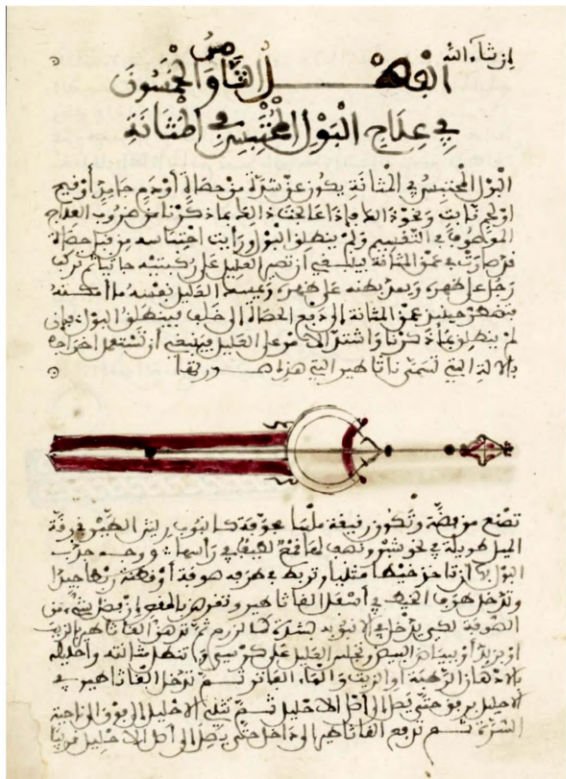 ان شاء الله
الفصل الثامن والخمسون
في علاج البول المحتبس في المثانة
البول المحتبس في المثانة يكون عن شدة من حصاة او دم جامد او قيح
او لحم نابت ونحو ذلك فاذا عالجت ذلك بما ذكرنا من ضروب العلاج
الموصوف في التقسيم ولم ينطلق البول ورأيت احتباسه من قبل حصاة
قد صارت في عنق المثانة فينبغي ان تصير العليل على ركبتيه جاثيا ثم تركب
رجل على ظهره ويمد بطنه على ظهره ويمسك العليل نفسه ما امكنه
يضطر حينئذ عنق المثانة الى دفع الحصاة الى خلف فينطلق البول فان
لم ينطلق بما ذكرنا واشتد الامر على العليل فينبغي ان تستعمل اخراجه
بالالة التي تسمى قاثاطير التي هذه صورتها
تصنع من فضة وتكون رقيقة ملسا مجوفة كانبوب ريش الطير في رقة
الميل طويلة في نحو شبر ونصف لها قمع لطيف في رأسها ووجه جذب
البول بها ان تاخذ خيطا مثنيا وتربط في طرفه صوفة او قطنة ربطا جيدا
وتدخل طرف الخيط في اسفل القاثاطير وتقرض بالمقص ان فضل شيء من
الصوفة لكي يدخل في الانبوب بشدة كالزر ثم تدهن القاثاطير بالزيت
او بزبد او ببياض البيض وتجلس العليل على كرسي وتنطل مثانته واحليله
بالادهان الرطبة او الزيت والماء الفاتر ثم تدخل القاثاطير في
الاحليل برفق حتى تصل الى اصل الاحليل ثم تثني الاحليل الى فوق الى ناحية
السرة ثم ترفع القاثاطير الى داخل حتى تصل الى اصل الاحليل قريبا